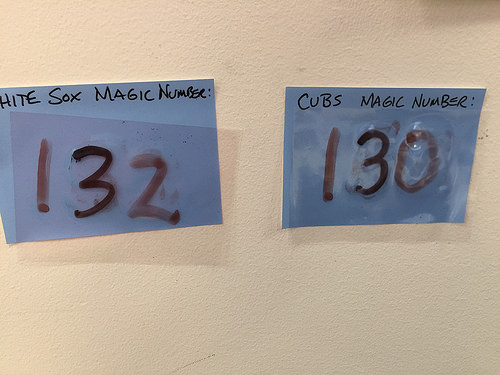 HITE SOX MAGIC NUMBER:
132
CUBS MAGIC NUMBER:
130